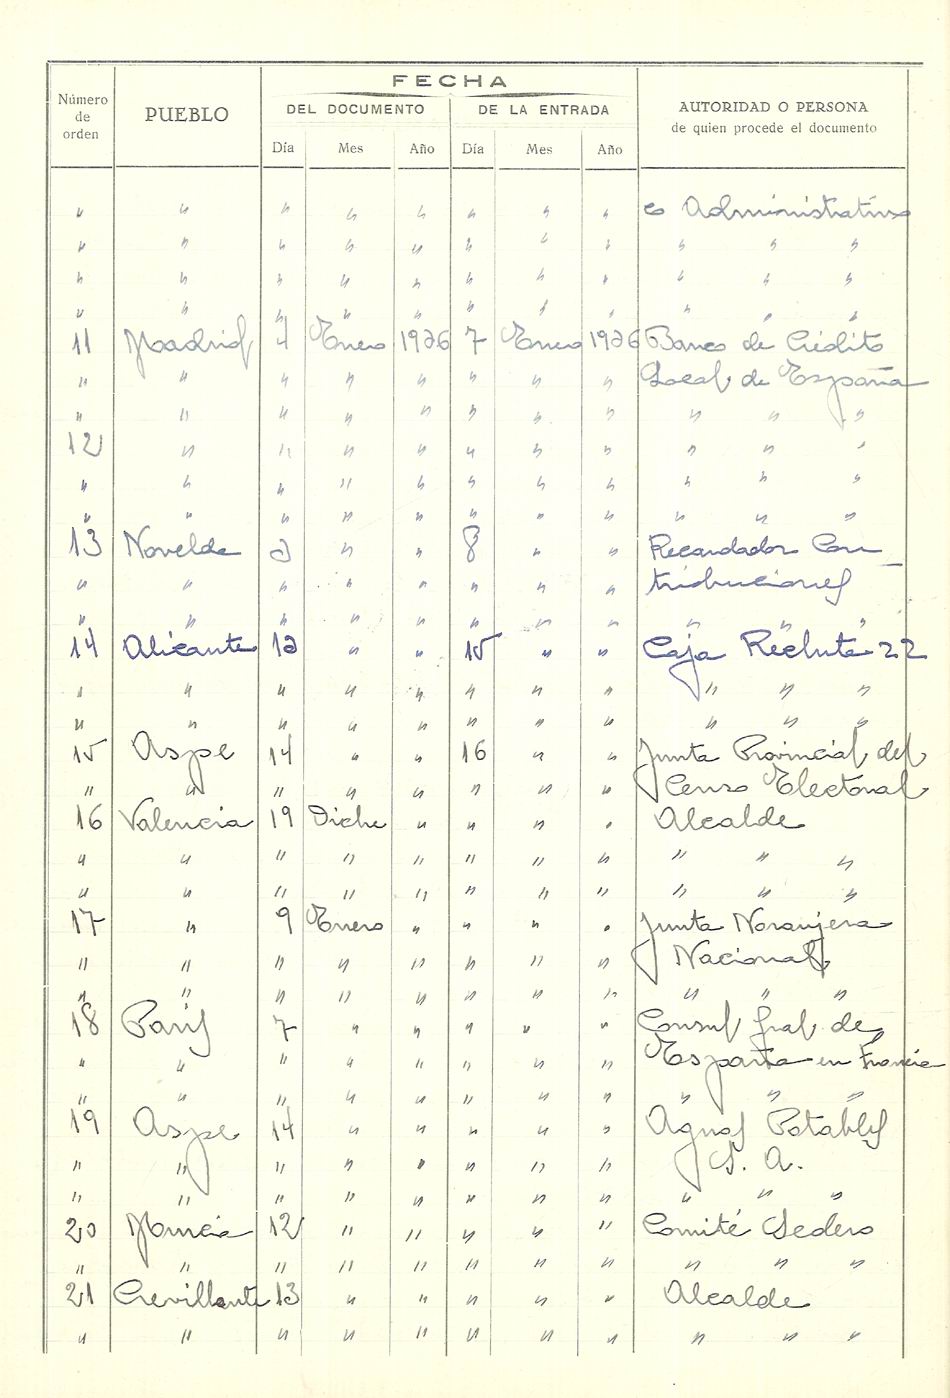 FECHA
Número de orden PUEBLO DEL DOCUMENTO DE LA ENTRADA AUTORIDAD O PERSONA
de quien procede el documento
Día Mes Año Día Mes Año
" " " " " " " " Administrativo
" " " " " " " " " " "
" " " " " " " " " " "
" " " " " " " " " " "
11 Madrid 4 Enero 1936 7 Enero 1936 Banco de Crédito
" " " " " " " " Local de España
" " " " " " " " " " "
12 " " " " " " " " " "
" " " " " " " " " " "
" " " " " " " " " " "
13 Novelda 2 " " 8 " " Recaudador Con
" " " " " " " " tribuciones
" " " " " " " " " " "
14 Alicante 12 " " 15 " " Caja Recluta 22
" " " " " " " " " " "
" " " " " " " " " " "
15 Aspe 14 " " 16 " " Junta Provincial del
" " " " " " " " Censo Electoral
16 Valencia 19 Dicbe " " " " Alcalde
" " " " " " " " " " "
" " " " " " " " " " "
17 " 9 Enero " " " " Junta Naranjera
" " " " " " " " Nacional
" " " " " " " " " " "
18 París 7 " " " " " Consul Gral de
" " " " " " " " España en Francia
" " " " " " " " " " "
19 Aspe 14 " " " " " Aguas Potables
" " " " " " " " S. A.
" " " " " " " " " " "
20 Murcia 12 " " " " " Comité Sedero
" " " " " " " " " " "
21 Crevillente 13 " " " " " Alcalde
" " " " " " " " " " "